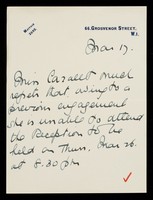 44, GROSVENOR STREET,
W.1.
Mar 17.
Miss Cazalet much
regrets that owing to a
previous engagement
she is unable to attend
the Reception to be
held on Thurs. Mar 26.
at 8.30 pm